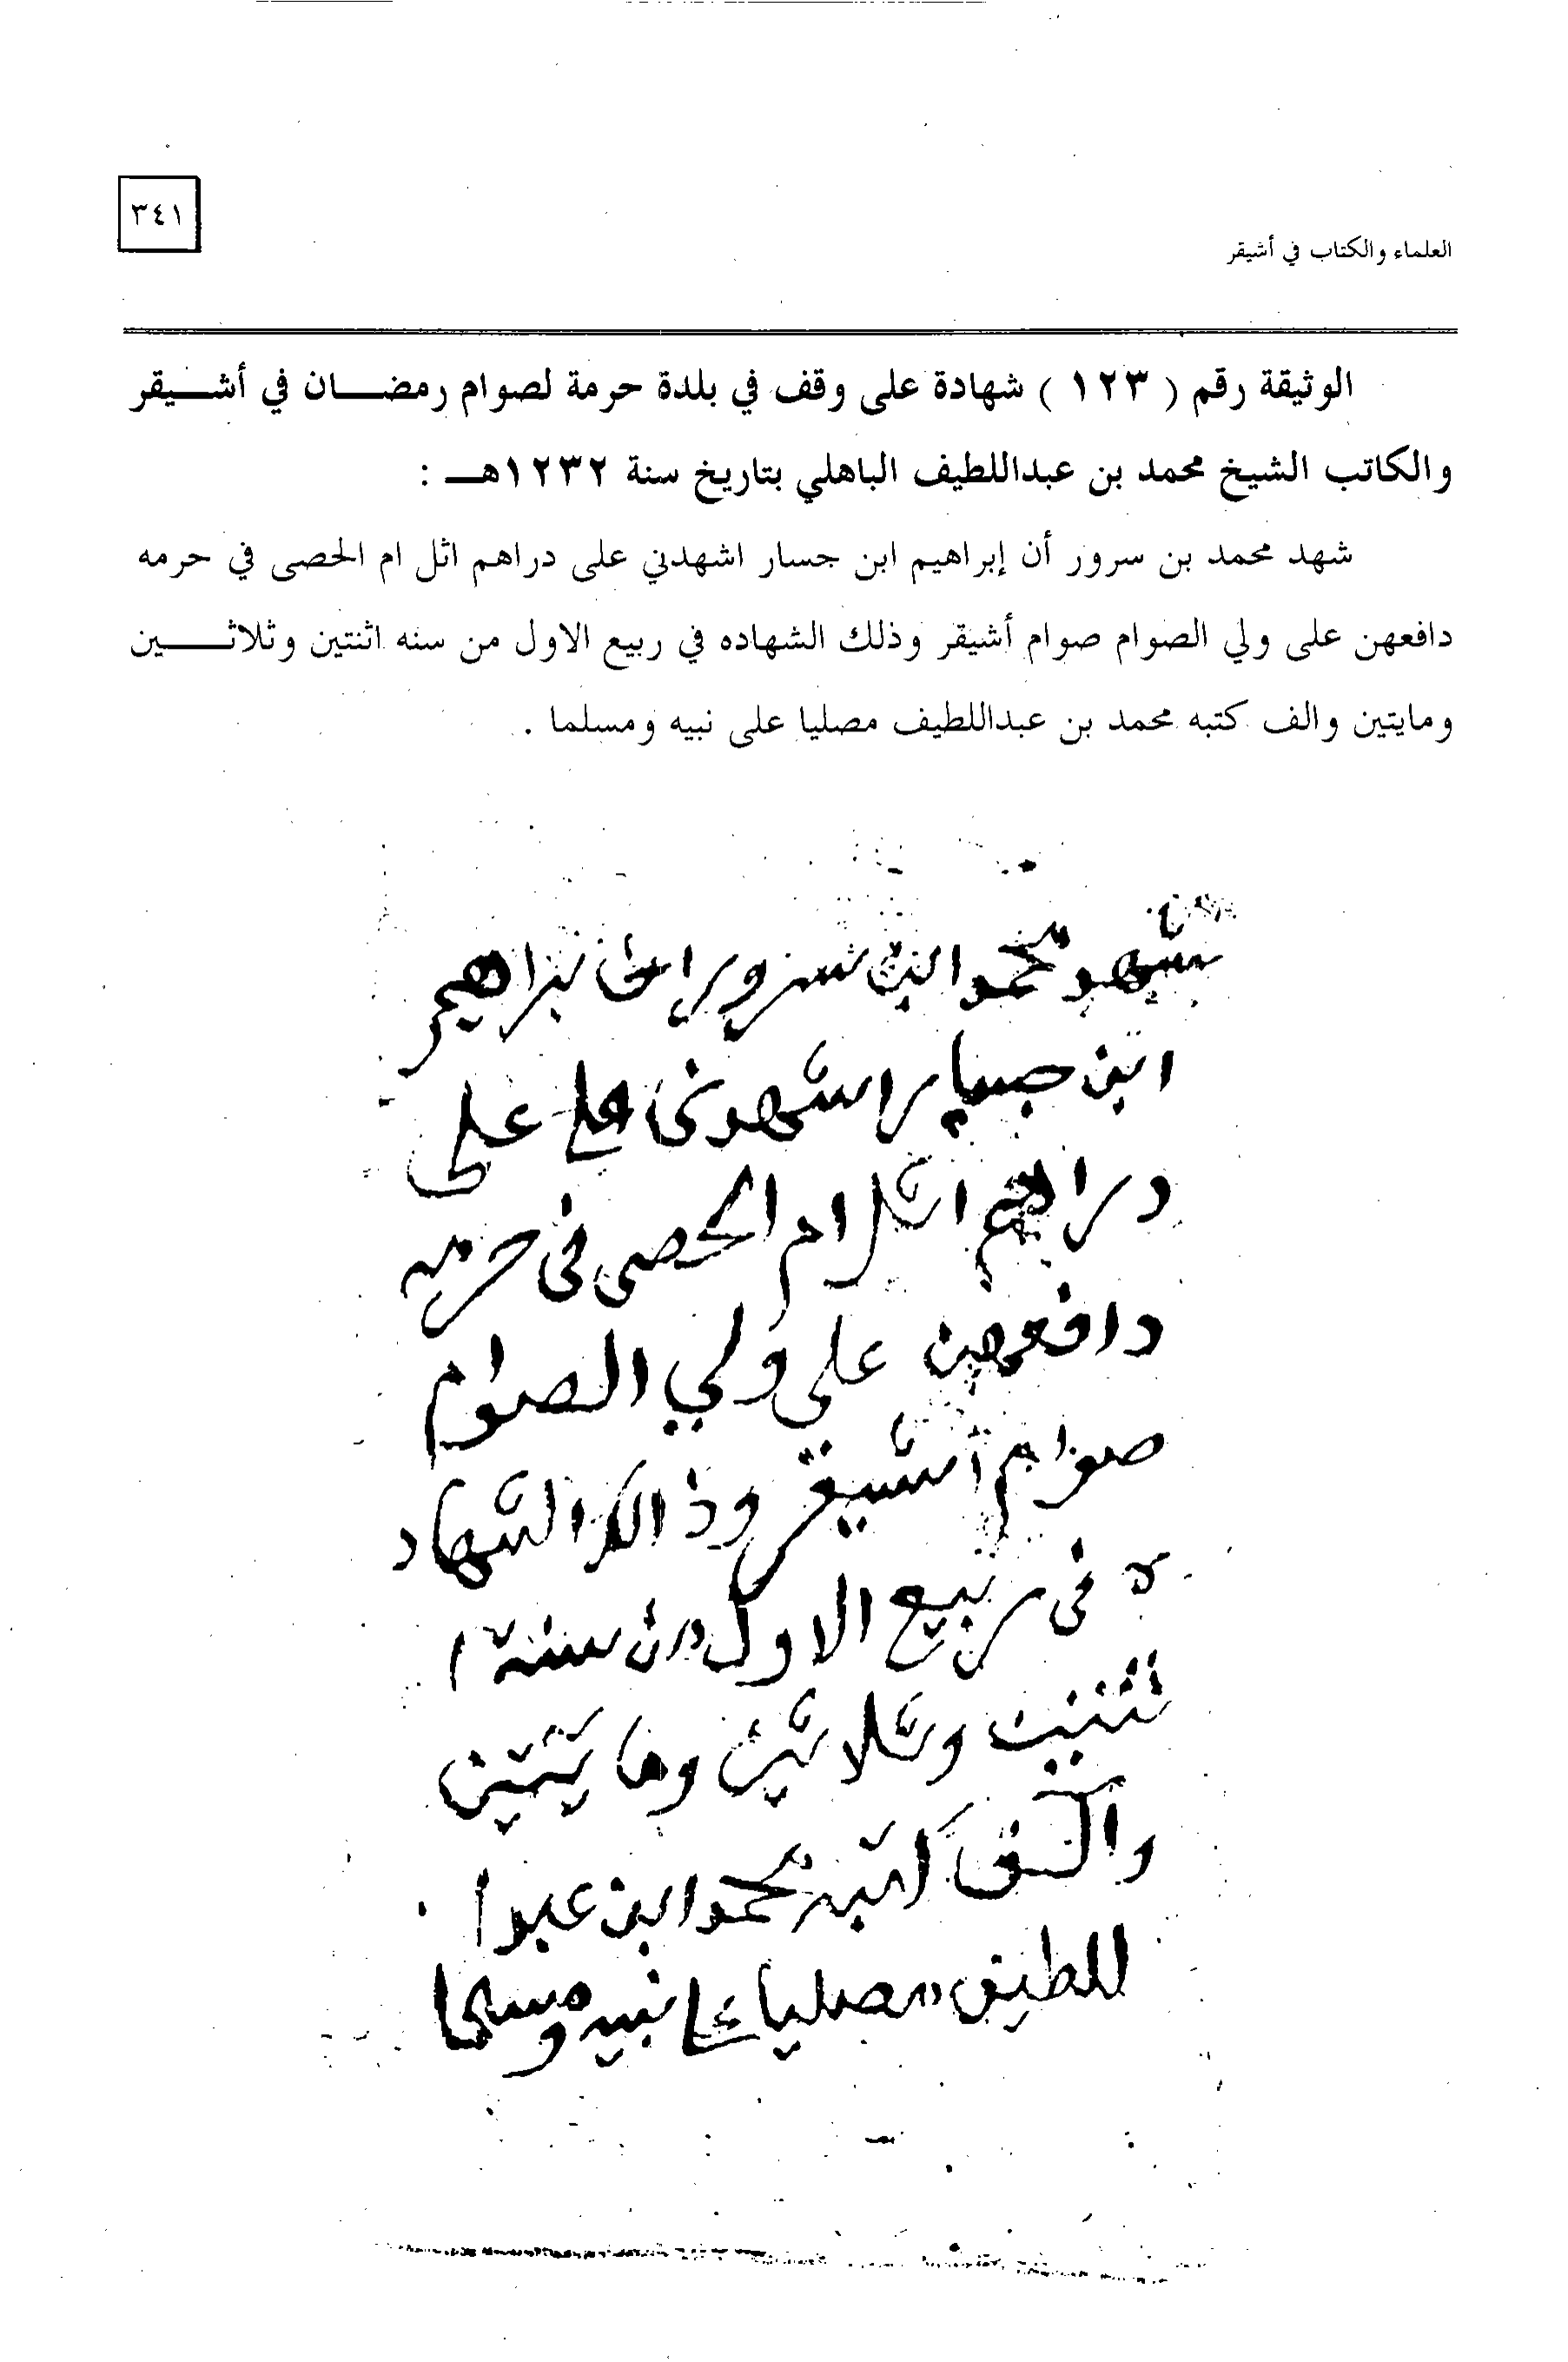 ٣٤١
العلماء والكتاب في أشيقر
الوثيقة رقم ( ١٢٣ ) شهادة على وقف في بلدة حرمة لصوام رمضـــان في أشـــيقر
والكاتب الشيخ محمد بن عبداللطيف الباهلي بتاريخ سنة ١٢٣٢هـــ :
شهد محمد بن سرور أن إبراهيم ابن جسار اشهدني على دراهم اثل ام الحصى في حرمه
دافعهن على ولي الصوام صوام أشيقر وذلك الشهاده في ربيع الاول من سنه اثنتين وثلاثـــين
ومايتين والف كتبه محمد بن عبداللطيف مصليا على نبيه ومسلما .
شهد محمد ابن سرور ان ابراهيم
ابن جسار اشهدني على
دراهم اثل ام الحصى في حرمه
دافعهن على ولي الصوام
صوام أشيقر وذالك الشهاد
ه في ربيع الاول من سنة ا
ثنتين وثلاثين ومايتين
وألف كتبه محمد ابن عبدا
للطيف مصليا على نبيه ومسلما